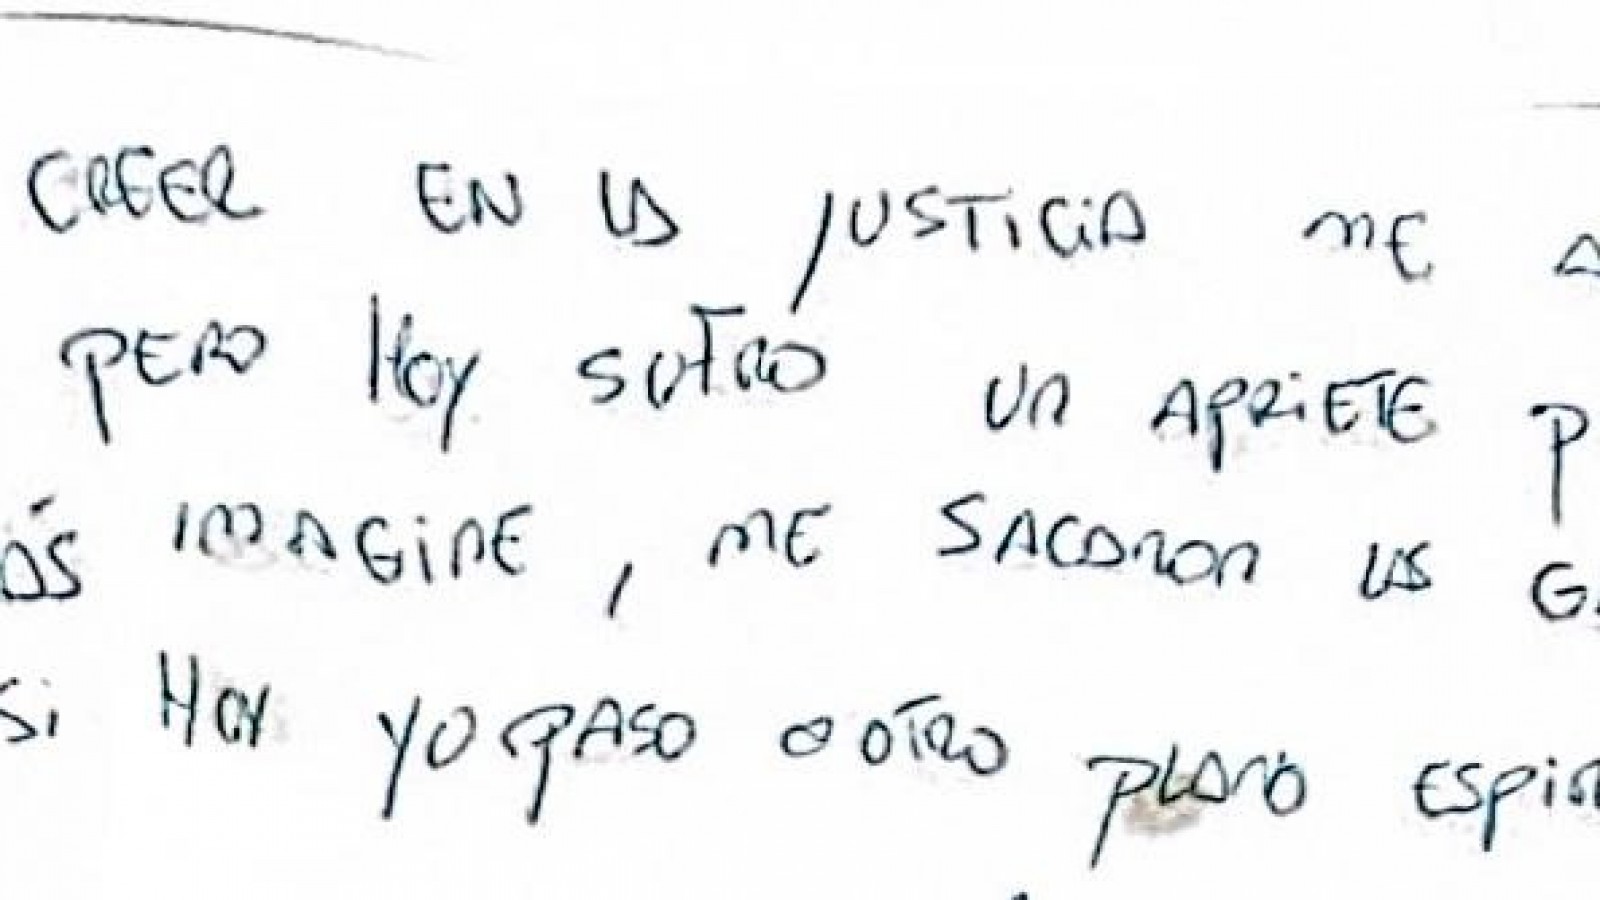 CREER EN LA JUSTICIA ME A
PERO HOY SUFRO UN APRIETE P
ÁS IMAGINE, ME SACARON LAS GA
SI HOY YO PASO A OTRO PLANO ESPIR